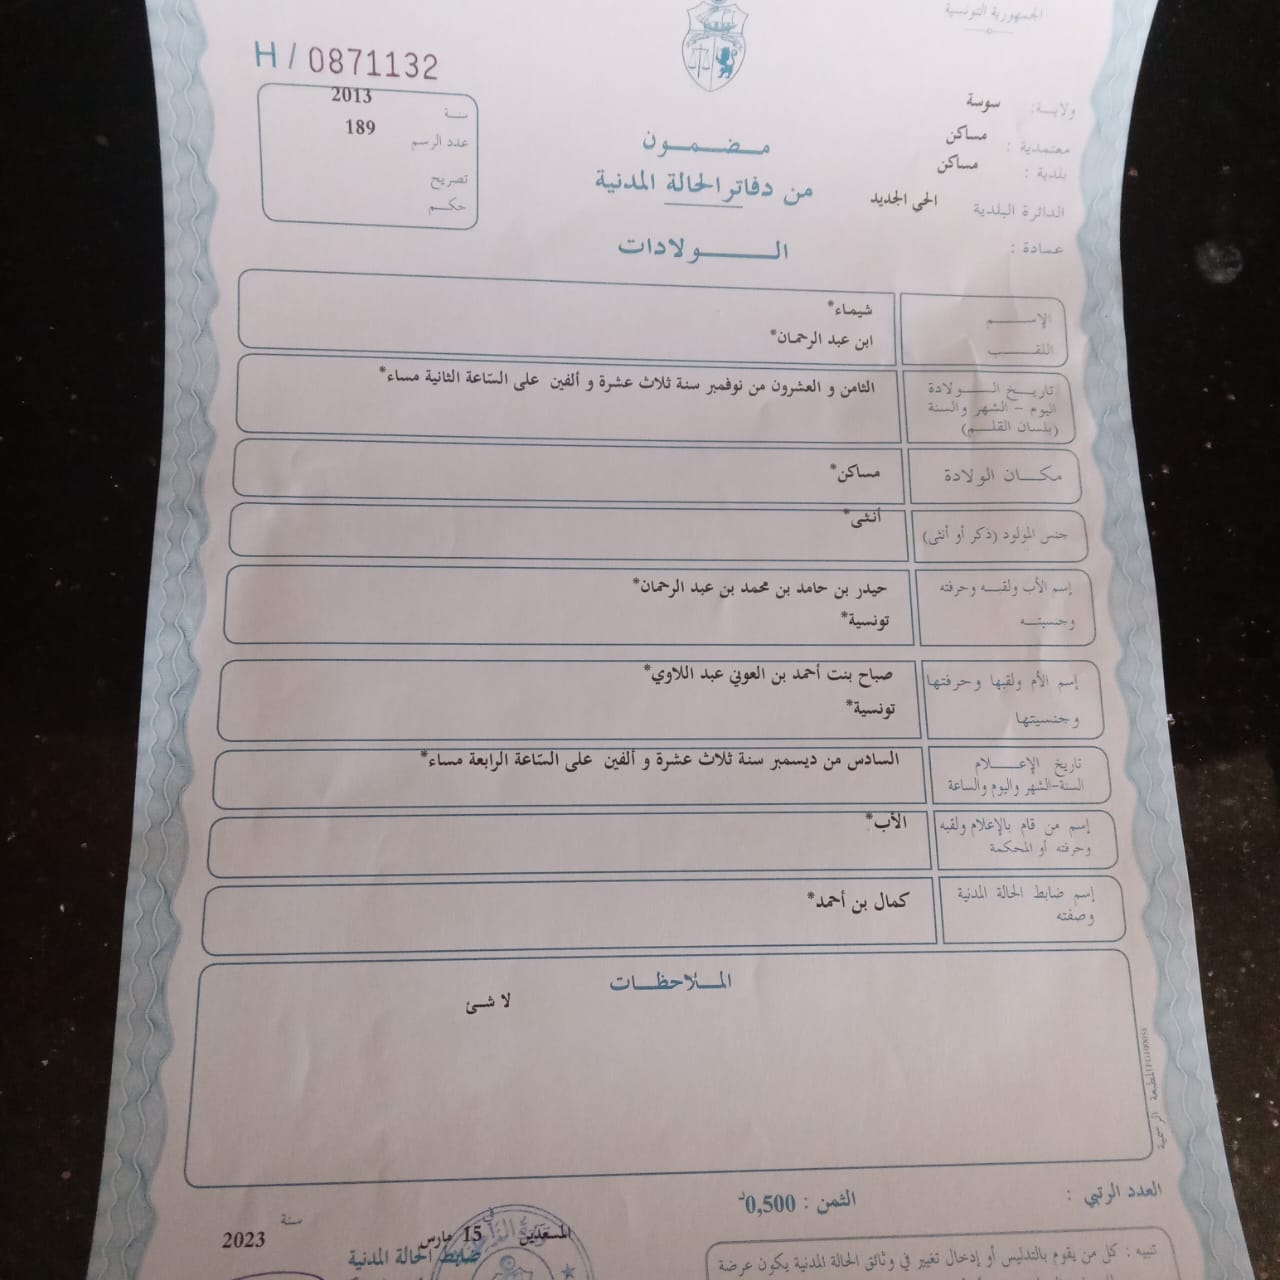 الجمهورية التونسية
H / 0871132
سنة 2013
عدد الرسم 189
تصريح
حكم
ولاية: سوسة
معتمدية : مساكن
بلدية : مساكن
الدائرة البلدية الحي الجديد
عمادة :
مضمون
من دفاتر الحالة المدنية
الولادات
الإسم شيماء*
اللقب ابن عبد الرحمان*
تاريخ الولادة
اليوم - الشهر والسنة
(بلسان القلم)
الثامن و العشرون من نوفمبر سنة ثلاث عشرة و ألفين على السّاعة الثانية مساء*
مكان الولادة مساكن*
جنس المولود (ذكر أو أنثى) أنثى*
إسم الأب ولقبه وحرفته حيدر بن حامد بن محمد بن عبد الرحمان*
وجنسيته تونسية*
إسم الأم ولقبها وحرفتها صباح بنت أحمد بن العوني عبد اللاوي*
وجنسيتها تونسية*
تاريخ الإعلام
السنة-الشهر واليوم والساعة
السادس من ديسمبر سنة ثلاث عشرة و ألفين على السّاعة الرابعة مساء*
إسم من قام بالإعلام ولقبه
وحرفته أو المحكمة
الأب*
إسم ضابط الحالة المدنية
وصفته
كمال بن أحمد*
الملاحظات
لا شئ
المطبعة الرسمية
العدد الرتبي :
الثمن : 0,500د
المسعدين 15 مارس سنة 2023
ضابط الحالة المدنية
تنبيه : كل من يقوم بالتدليس أو إدخال تغيير في وثائق الحالة المدنية يكون عرضة